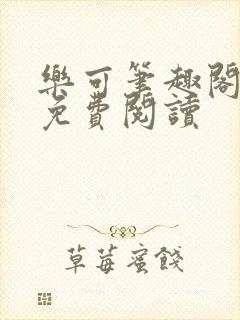 樂可筆趣閣
免費閱讀
草莓蜜餞